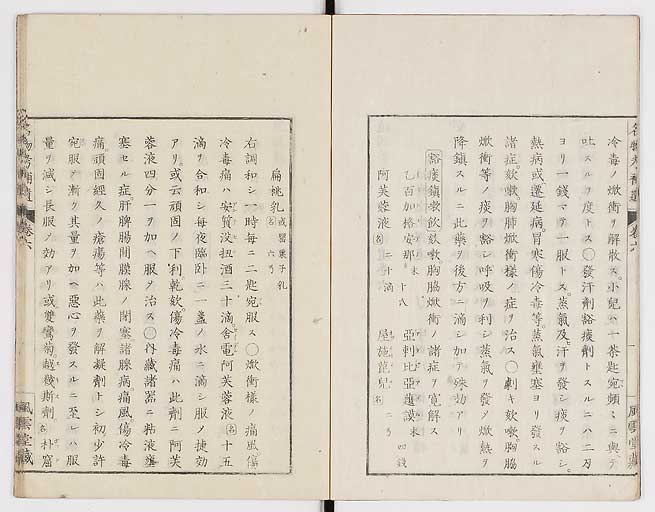 冷毒ノ焮衝ヲ解散ス。小兒ハ一茶匙宛頻ミニ與テ
吐スルヲ度トス○發汗劑豁痰劑トスルニハ二刃
ヨリ一錢マテ一服トス。蒸氣及ヒ汗ヲ發シ痰ヲ豁シ。
熱病或遷延病胃寒傷冷毒等。蒸氣壅塞ヨリ發スル
諸症。欬嗽。胸肺焮衝樣ノ症ヲ治ス○劇キ欬嗽。胸脇
焮衝等ノ痰ヲ豁シ呼吸ヲ利シ蒸氣ヲ發ノ焮熱ヲ
降鎮スルニ此藥ヲ後方ニ滴シ加テ殊効アリ
豁痰鎮嗽飲 欬嗽。胸脇焮衝ノ諸症ヲ寛解ス
乙百加格安那。末 十八 亞剌比亞護謨 末 四錢
阿芙蓉液 名 二十滴 屋施篦兒 名 二ヲ
扁桃乳 名 或罌粟子乳 六ヲ
右調和シ一時每ニ二匙宛服ス○焮衝樣ノ痛風傷
冷毒痛ハ安質没扭酒三十滴含電阿芙蓉液 名 十五
滴ヲ合和シ每夜臨卧ニ一盞ノ水ニ滴シ服ノ捷効
アリ。或云頑固ノ下利乾欬。傷冷毒痛ハ此劑ニ阿芙
蓉液四分一ヲ加ヘ服ノ治ス○內藏諸器ニ粘液壅
塞セル症肝脾腸間膜腺ノ閉塞諸腺病痛風傷冷毒
痛頑固經久ノ瘡瘍等ハ此藥ヲ解凝劑トシ初少許
宛服ノ漸ク其量ヲ加ヘ惡心ヲ發スルニ至レハ服
量ヲ減シ長服ノ効アリ或雙鸞菊越幾斯劑 名 朴窟
風雲堂藏